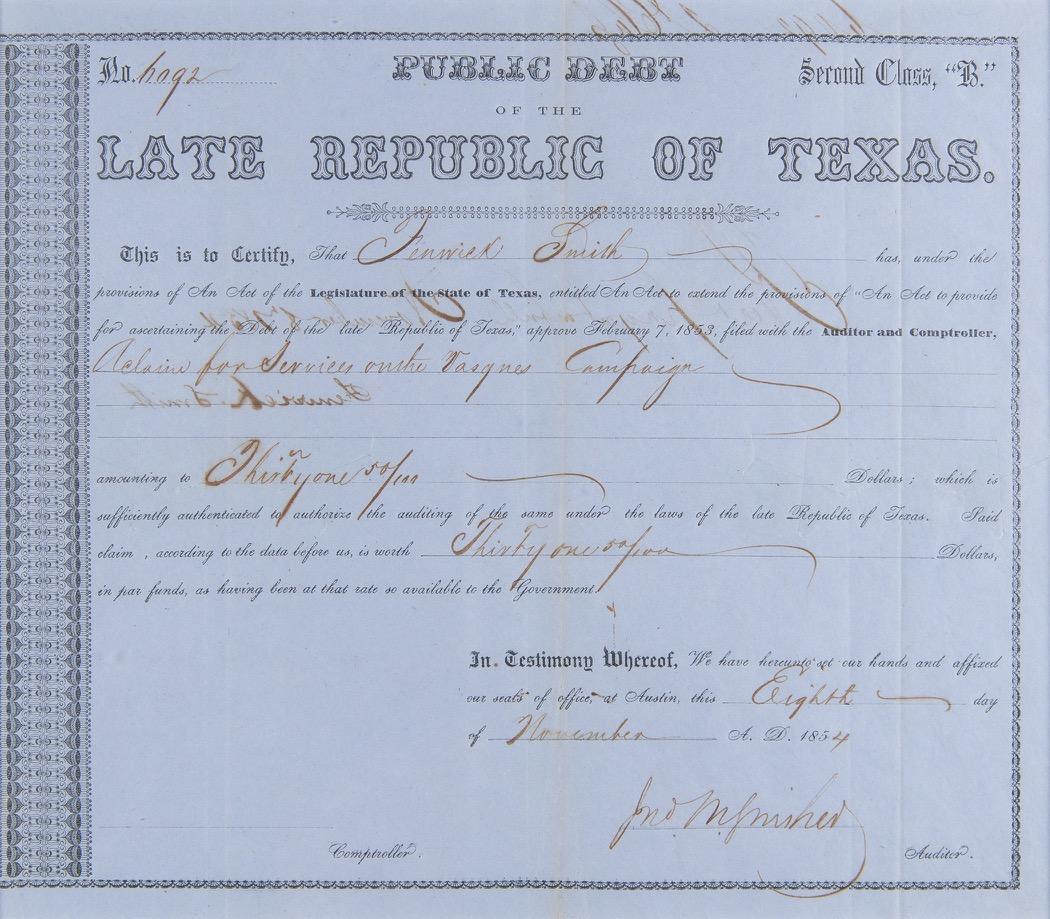 No. 6092 PUBLIC DEBT Second Class, "B."
OF THE
LATE REPUBLIC OF TEXAS.
This is to Certify, That Fenwick Smith has, under the
provisions of An Act of the Legislature of the State of Texas, entitled An Act to extend the provisions of "An Act to provide
for ascertaining the Debt of the late Republic of Texas," approve February 7, 1853, filed with the Auditor and Comptroller,
A claim for Services on the Vasques Campaign
Fenwick Smith
amounting to Thirty one 50/100 Dollars; which is
sufficiently authenticated to authorize the auditing of the same under the laws of the late Republic of Texas. Said
claim, according to the data before us, is worth Thirty one 50/100 Dollars,
in par funds, as having been at that rate so available to the Government.
In Testimony Whereof, We have hereunto set our hands and affixed
our seals of office, at Austin, this Eighth day
of November A. D. 1854
Jno M Swisher
Comptroller. Auditor.